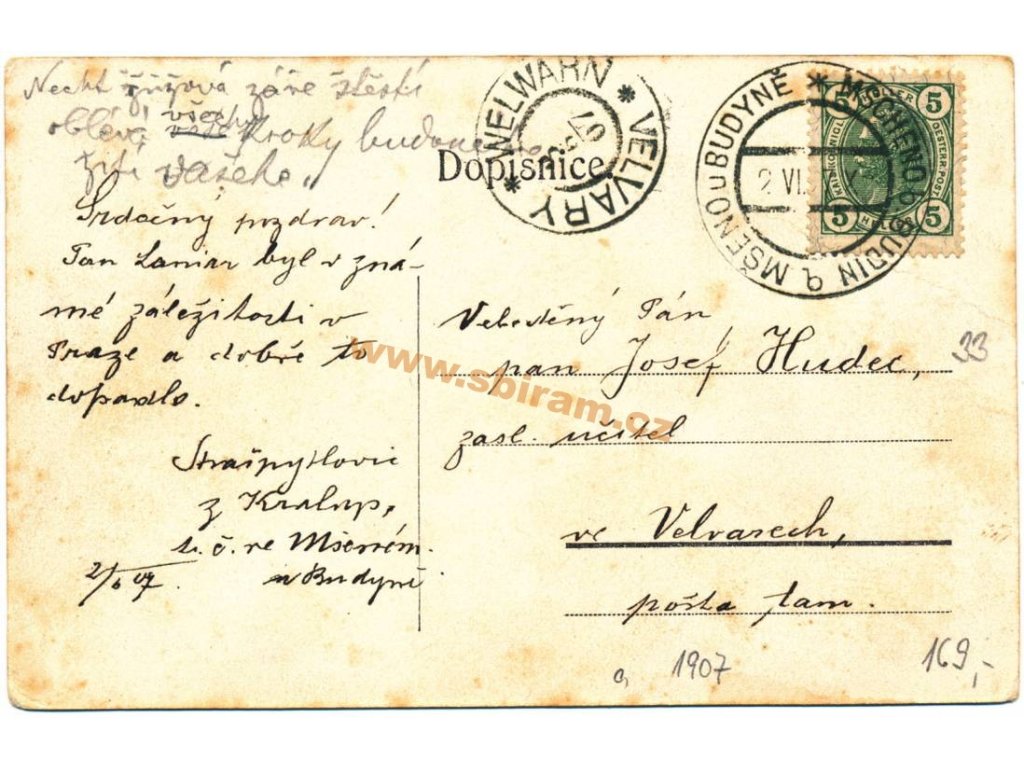 Nechť růžová záře štěstí
oblévá všechny kroky budoucího
žití Vašeho"
Dopisnice
WELWARN * VELVARY *
07
MŠENO u BUDYNĚ * MSCHENO b. BUDIN a.
2 VI.
5 5
5 5
Srdečný pozdrav!
Pan Laniar byl v zná-
mé záležitosti v
Praze a dobře to
dopadlo.
Strašpytlovic
z Kralup,
t. č. ve Mšeném
u Budyně
2/6 07.
Velectěný Pán
pan Josef Hudec,
zasl. učitel
ve Velvarech,
pošta tam.
33
a 1907
169,-
www.sbiram.cz